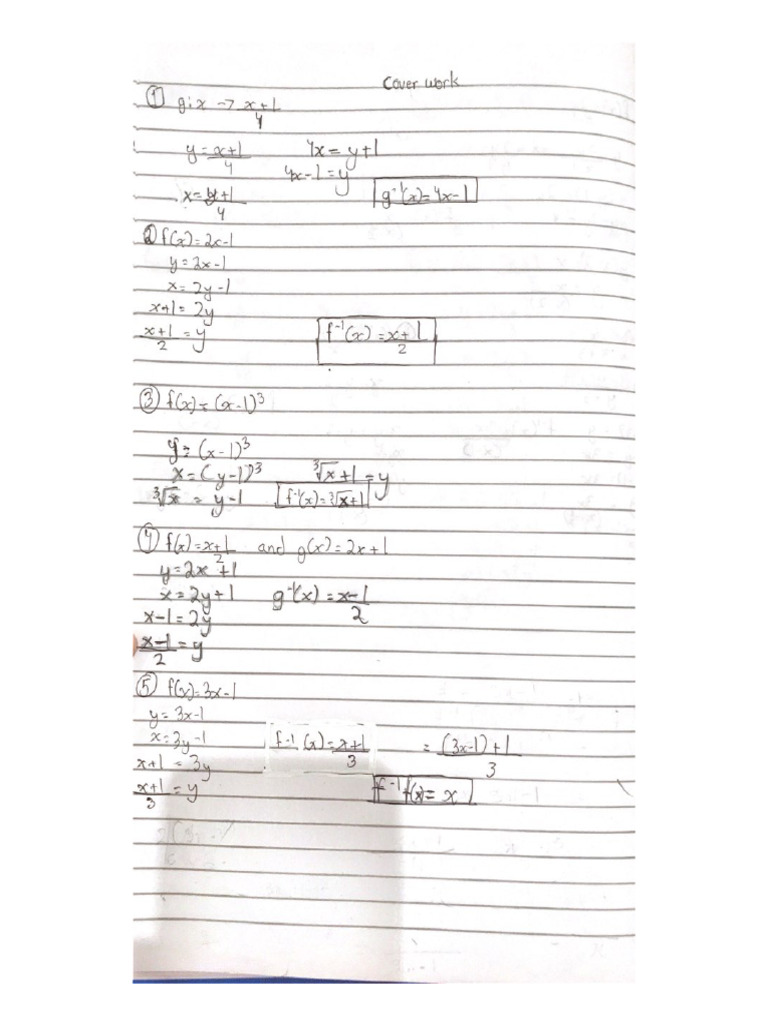 Cover work
① g:x → x+1/4
y = x+1/4    4x = y+1
4x-1 = y
x = y+1/4    g⁻¹(x) = 4x-1
② f(x) = 2x-1
y = 2x-1
x = 2y-1
x+1 = 2y
x+1/2 = y    f⁻¹(x) = x+1/2
③ f(x) = (x-1)³
y = (x-1)³
x = (y-1)³    ³√x + 1 = y
³√x = y-1    f⁻¹(x) = ³√x+1
④ f(x) = x+1/2 and g(x) = 2x+1
y = 2x+1
x = 2y+1    g⁻¹(x) = x-1/2
x-1 = 2y
x-1/2 = y
⑤ f(x) = 3x-1
y = 3x-1
x = 3y-1    f⁻¹(x) = x+1/3    = (3x-1)+1/3
x+1 = 3y
x+1/3 = y    f⁻¹f(x) = x